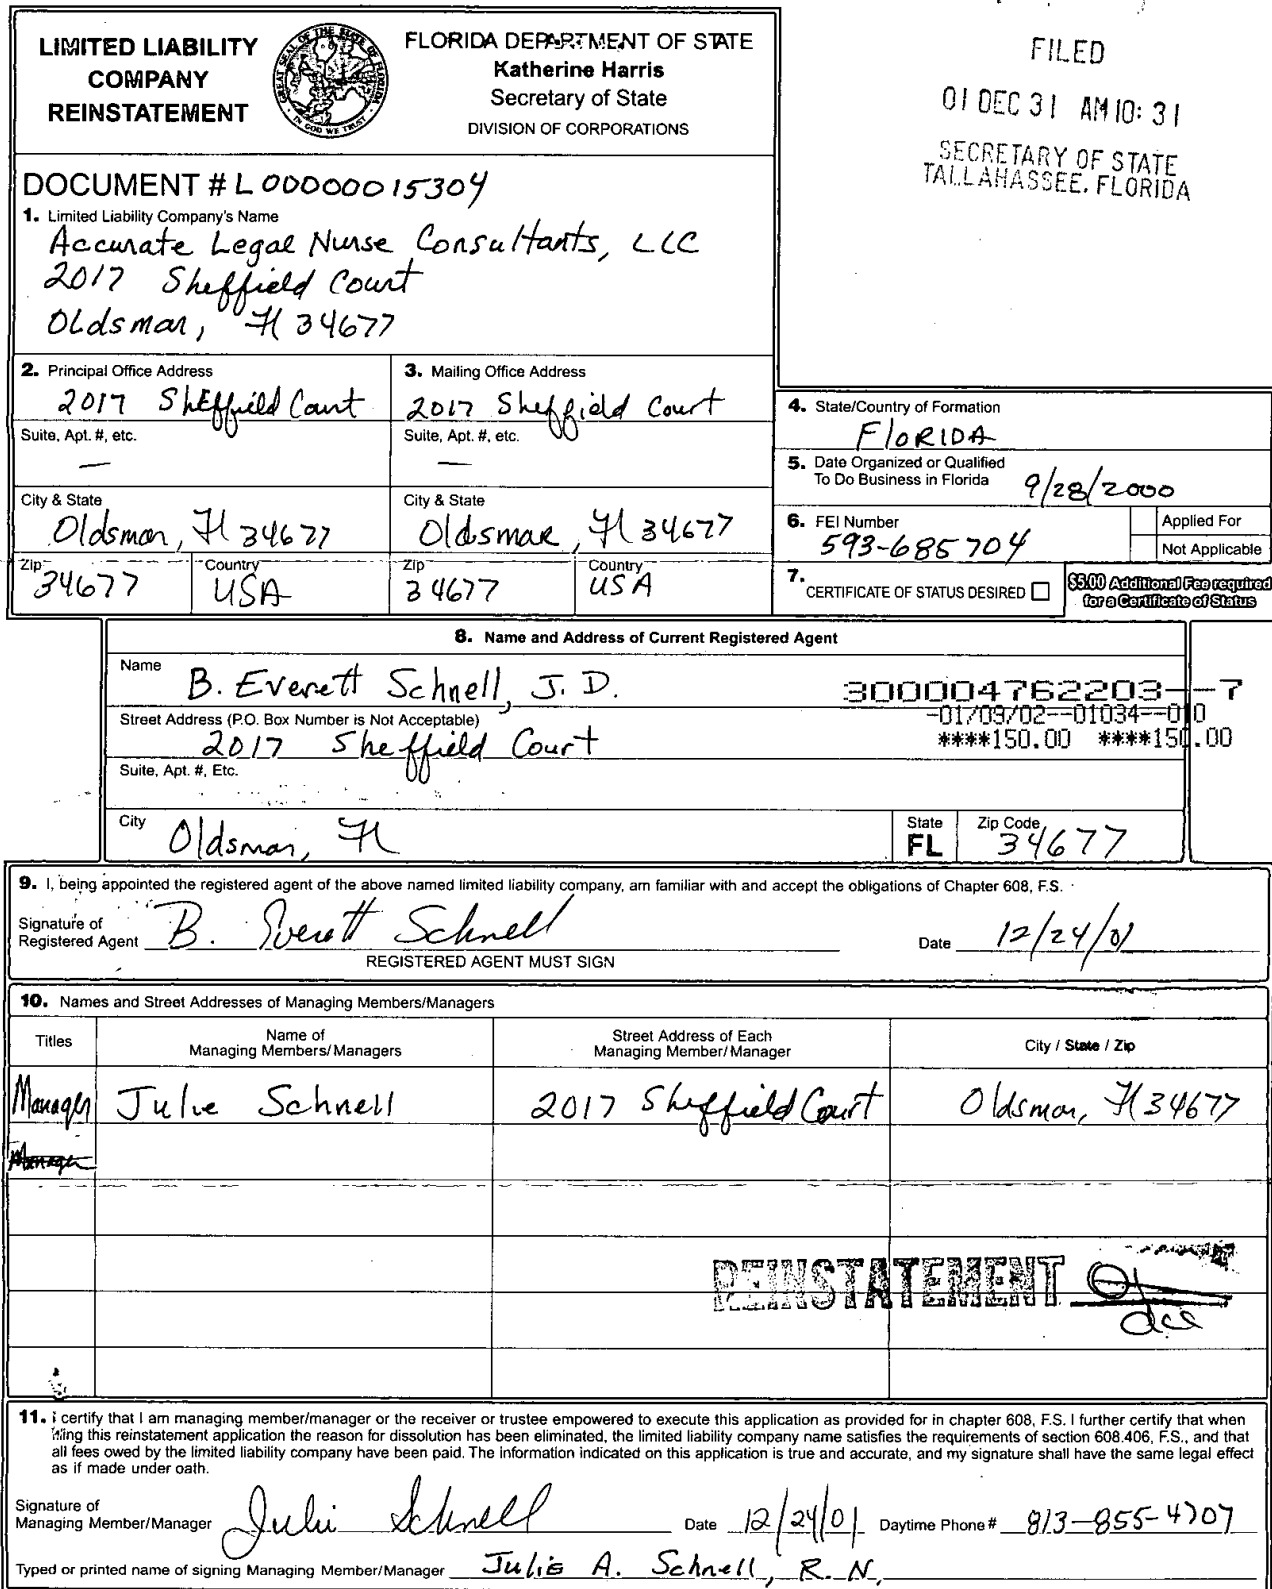 LIMITED LIABILITY
COMPANY
REINSTATEMENT
GREAT SEAL OF THE STATE OF FLORIDA
IN GOD WE TRUST
FLORIDA DEPARTMENT OF STATE
Katherine Harris
Secretary of State
DIVISION OF CORPORATIONS
FILED
01 DEC 31 AM 10: 31
SECRETARY OF STATE
TALLAHASSEE, FLORIDA
DOCUMENT # L00000015304
1. Limited Liability Company's Name
Accurate Legal Nurse Consultants, LLC
2017 Sheffield Court
Oldsmar, Fl 34677
2. Principal Office Address
2017 Sheffield Court
Suite, Apt. #, etc.
—
City & State
Oldsmar, Fl 34677
Zip
34677
Country
USA
3. Mailing Office Address
2017 Sheffield Court
Suite, Apt. #, etc.
—
City & State
Oldsmar, Fl 34677
Zip
34677
Country
USA
4. State/Country of Formation
FloRIDA
5. Date Organized or Qualified
To Do Business in Florida
9/28/2000
6. FEI Number
593-685704
Applied For
Not Applicable
7. CERTIFICATE OF STATUS DESIRED
$5.00 Additional Fee required
for a Certificate of Status
8. Name and Address of Current Registered Agent
Name
B. Everett Schnell, J.D.
300004762203--7
-01/09/02--01034--010
****150.00 ****150.00
Street Address (P.O. Box Number is Not Acceptable)
2017 Sheffield Court
Suite, Apt. #, Etc.
City
Oldsmar, Fl
State
FL
Zip Code
34677
9. I, being appointed the registered agent of the above named limited liability company, am familiar with and accept the obligations of Chapter 608, F.S.
Signature of
Registered Agent B. Everett Schnell Date 12/24/01
REGISTERED AGENT MUST SIGN
10. Names and Street Addresses of Managing Members/Managers
Titles
Name of
Managing Members/Managers
Street Address of Each
Managing Member/Manager
City / State / Zip
Manager Julie Schnell 2017 Sheffield Court Oldsmar, Fl 34677
Manager
REINSTATEMENT
dce
11. I certify that I am managing member/manager or the receiver or trustee empowered to execute this application as provided for in chapter 608, F.S. I further certify that when
filing this reinstatement application the reason for dissolution has been eliminated, the limited liability company name satisfies the requirements of section 608.406, F.S., and that
all fees owed by the limited liability company have been paid. The information indicated on this application is true and accurate, and my signature shall have the same legal effect
as if made under oath.
Signature of
Managing Member/Manager Julie Schnell Date 12/24/01 Daytime Phone # 813-855-4707
Typed or printed name of signing Managing Member/Manager Julie A. Schnell, R.N.